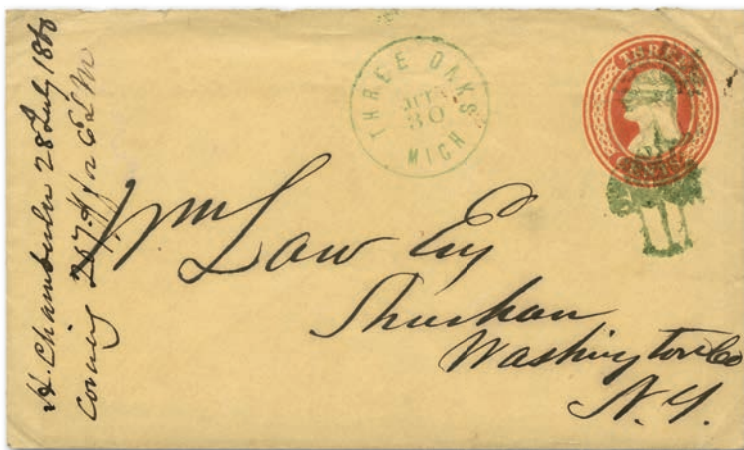 H. Chamberlin 28 July 1860
Coming 257.11 for E L M
THREE OAKS
30
MICH
THREE
CENTS
Wm Law Esq
Shushan
Washington Co
N.Y.